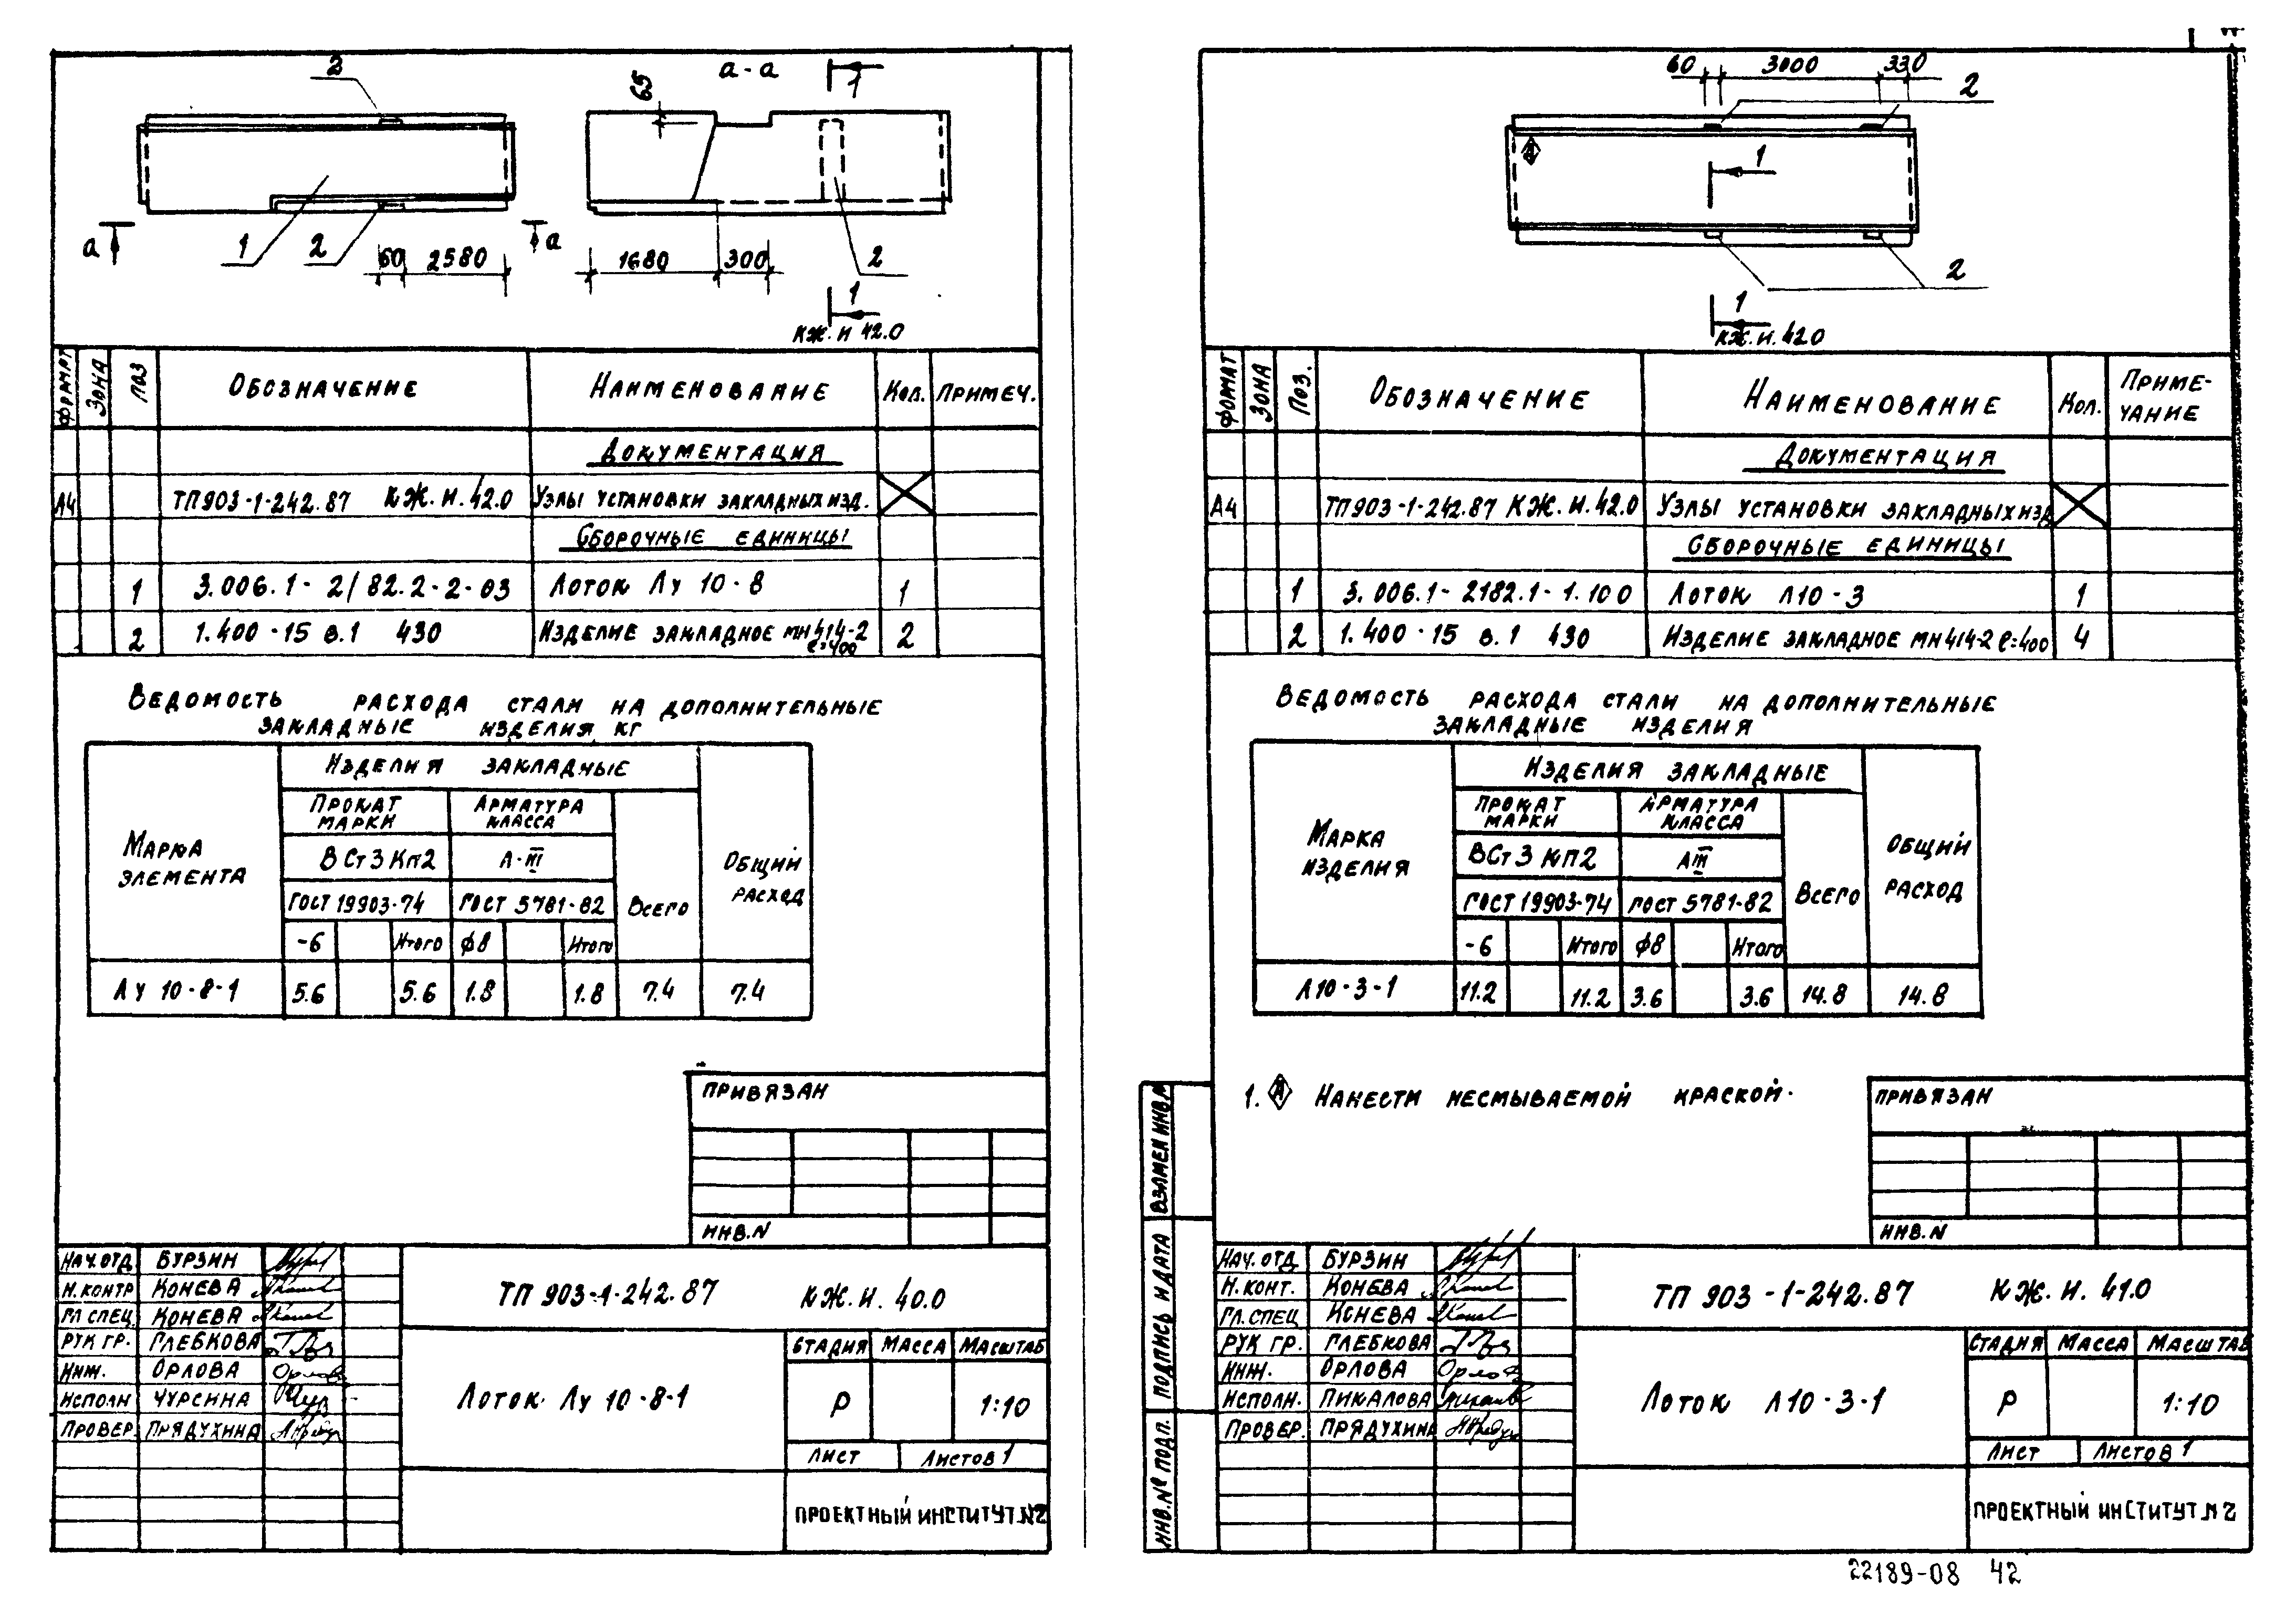 2
а-а
1
65
1
2
60 2580
1680 300
2
а
а
1
КЖ.И 42.0
ФОРМАТ ЗОНА ПОЗ ОБОЗНАЧЕНИЕ НАИМЕНОВАНИЕ КОЛ. ПРИМЕЧ.
ДОКУМЕНТАЦИЯ
А4 ТП903-1-242.87 КЖ.И.42.0 УЗЛЫ УСТАНОВКИ ЗАКЛАДНЫХ ИЗД.
СБОРОЧНЫЕ ЕДИНИЦЫ
1 3.006.1-2/82.2-2-03 ЛОТОК ЛУ 10-8 1
2 1.400-15 В.1 430 ИЗДЕЛИЕ ЗАКЛАДНОЕ МН414-2 2
ℓ=400
ВЕДОМОСТЬ РАСХОДА СТАЛИ НА ДОПОЛНИТЕЛЬНЫЕ
ЗАКЛАДНЫЕ ИЗДЕЛИЯ КГ
МАРКА ЭЛЕМЕНТА
ИЗДЕЛИЯ ЗАКЛАДНЫЕ
ПРОКАТ МАРКИ АРМАТУРА КЛАССА
ВСт3Кп2 А-III
ГОСТ 19903-74 ГОСТ 5781-82 ВСЕГО ОБЩИЙ РАСХОД
-6 Итого ϕ8 Итого
ЛУ 10-8-1 5.6 5.6 1.8 1.8 7.4 7.4
ПРИВЯЗАН
ИНВ.N
НАЧ.ОТД БУРЗИН
Н.КОНТР КОНЕВА
ГЛ СПЕЦ. КОНЕВА
РУК ГР. ГЛЕБКОВА
ИНЖ. ОРЛОВА
ИСПОЛН ЧУРСИНА
ПРОВЕР ПРЯДУХИНА
ТП 903-1-242.87 КЖ.И.40.0
ЛОТОК ЛУ 10-8-1
СТАДИЯ МАССА МАСШТАБ
Р 1:10
ЛИСТ ЛИСТОВ 1
ПРОЕКТНЫЙ ИНСТИТУТ N2
60 3000 330
2
1
2
1
КЖ.И.42.0
ФОРМАТ ЗОНА ПОЗ. ОБОЗНАЧЕНИЕ НАИМЕНОВАНИЕ КОЛ. ПРИМЕ-
ЧАНИЕ
ДОКУМЕНТАЦИЯ
А4 ТП903-1-242.87 КЖ.И.42.0 УЗЛЫ УСТАНОВКИ ЗАКЛАДНЫХ ИЗД
СБОРОЧНЫЕ ЕДИНИЦЫ
1 3.006.1-2182.1-1.100 ЛОТОК Л10-3 1
2 1.400-15 В.1 430 ИЗДЕЛИЕ ЗАКЛАДНОЕ МН414-2 ℓ=400 4
ВЕДОМОСТЬ РАСХОДА СТАЛИ НА ДОПОЛНИТЕЛЬНЫЕ
ЗАКЛАДНЫЕ ИЗДЕЛИЯ
МАРКА ИЗДЕЛИЯ
ИЗДЕЛИЯ ЗАКЛАДНЫЕ
ПРОКАТ МАРКИ АРМАТУРА КЛАССА
ВСт3КП2 АIII
ГОСТ 19903-74 ГОСТ 5781-82 ВСЕГО ОБЩИЙ РАСХОД
-6 Итого ϕ8 Итого
Л10-3-1 11.2 11.2 3.6 3.6 14.8 14.8
1. НАНЕСТИ НЕСМЫВАЕМОЙ КРАСКОЙ.
ПРИВЯЗАН
ИНВ.N
ВЗАМЕН ИНВ.
ПОДПИСЬ И ДАТА
ИНВ.№ ПОДП.
НАЧ.ОТД БУРЗИН
Н.КОНТ. КОНЕВА
ГЛ.СПЕЦ КОНЕВА
РУК ГР. ГЛЕБКОВА
ИНЖ. ОРЛОВА
ИСПОЛН. ПИКАЛОВА
ПРОВЕР. ПРЯДУХИНА
ТП 903-1-242.87 КЖ.И.41.0
ЛОТОК Л10-3-1
СТАДИЯ МАССА МАСШТАБ
Р 1:10
ЛИСТ ЛИСТОВ 1
ПРОЕКТНЫЙ ИНСТИТУТ N2
22189-08 42